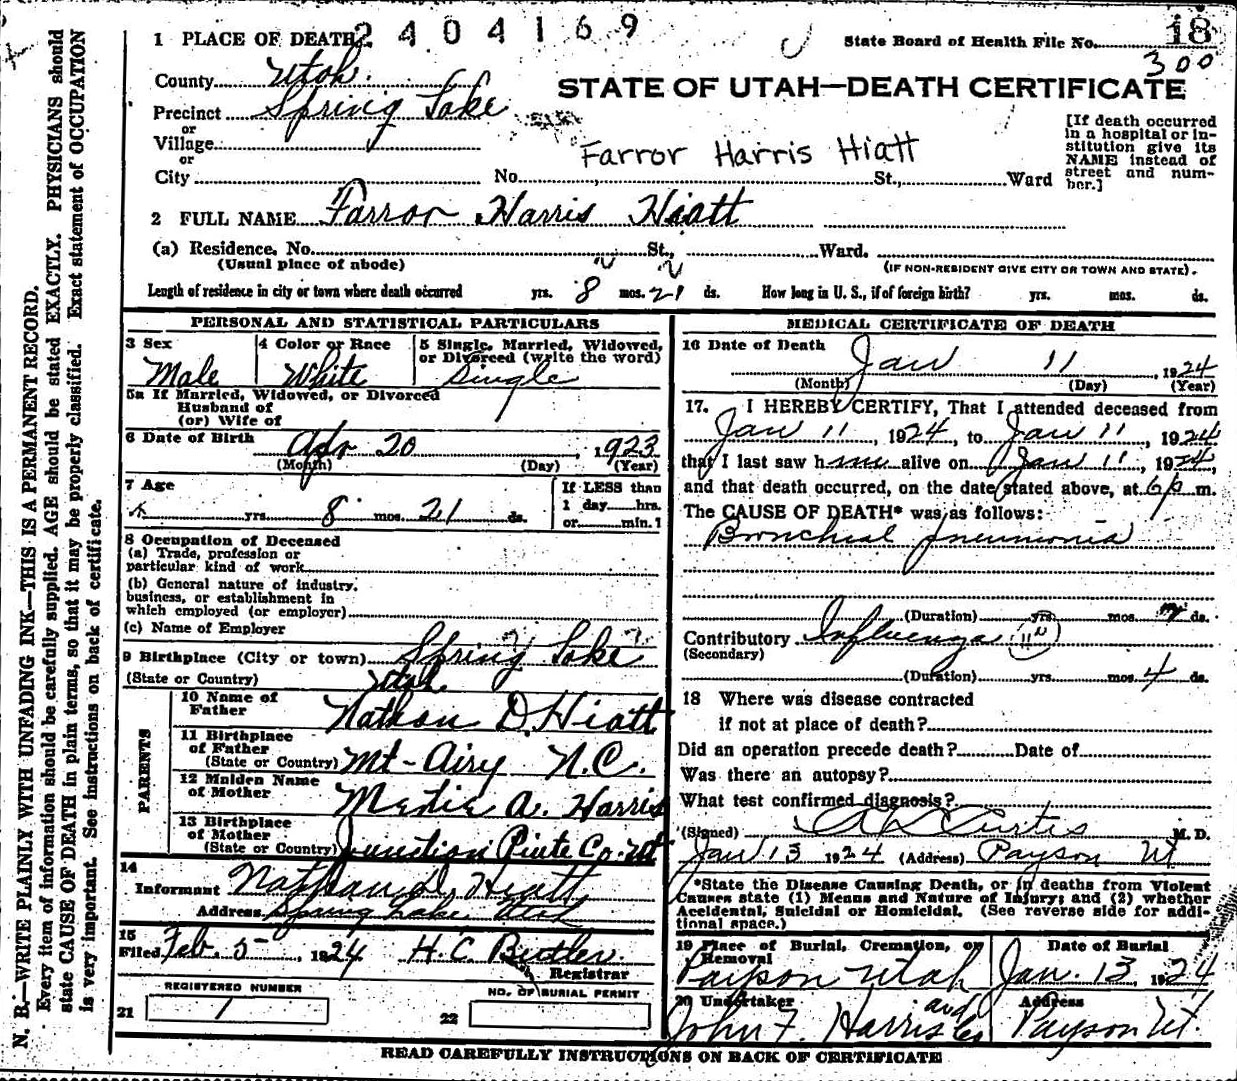 2404169
18
State Board of Health File No.
300
1 PLACE OF DEATH
County Utah.
STATE OF UTAH—DEATH CERTIFICATE
Precinct Spring Lake
or
Village
or
City No. St., Ward
Farror Harris Hiatt
[If death occurred
in a hospital or in-
stitution give its
NAME instead of
street and num-
ber.]
2 FULL NAME Farror Harris Hiatt
(a) Residence. No. St., Ward.
(Usual place of abode)
(IF NON-RESIDENT GIVE CITY OR TOWN AND STATE).
Length of residence in city or town where death occurred yrs. 8 mos. 21 ds. How long in U. S., if of foreign birth? yrs. mos. ds.
PERSONAL AND STATISTICAL PARTICULARS
3 Sex
Male
4 Color or Race
White
5 Single, Married, Widowed,
or Divorced (write the word)
Single
5a If Married, Widowed, or Divorced
Husband of
(or) Wife of
6 Date of Birth Apr 20, 1923
(Month) (Day) (Year)
7 Age
yrs. 8 mos. 21 ds.
If LESS than
1 day hrs.
or min.?
8 Occupation of Deceased
(a) Trade, profession or
particular kind of work
(b) General nature of industry,
business, or establishment in
which employed (or employer)
(c) Name of Employer
9 Birthplace (City or town) Spring Lake
(State or Country) Utah
PARENTS
10 Name of
Father Nathan D. Hiatt
11 Birthplace
of Father
(State or Country) Mt-Airy N.C.
12 Maiden Name
of Mother A. Harris
13 Birthplace
of Mother
(State or Country) Junction Piute Co. Ut
14
Informant Nathan D. Hiatt
Address Spring Lake Utah
15
Filed Feb. 5, 1924 H. C. Butler
Registrar
REGISTERED NUMBER
21 1
NO. OF BURIAL PERMIT
22
MEDICAL CERTIFICATE OF DEATH
16 Date of Death Jan 11, 1924
(Month) (Day) (Year)
17. I HEREBY CERTIFY, That I attended deceased from
Jan 11, 1924, to Jan 11, 1924
that I last saw him alive on Jan 11, 1924,
and that death occurred, on the date stated above, at 6 p m.
The CAUSE OF DEATH* was as follows:
Bronchial Pneumonia
(Duration) yrs. mos. ds.
Contributory Influenza
(Secondary)
(Duration) yrs. mos. 4 ds.
18 Where was disease contracted
if not at place of death?
Did an operation precede death? Date of
Was there an autopsy?
What test confirmed diagnosis?
(Signed) Curtis M. D.
Jan 13 1924 (Address) Payson Ut
*State the Disease Causing Death, or in deaths from Violent
Causes state (1) Means and Nature of Injury; and (2) whether
Accidental, Suicidal or Homicidal. (See reverse side for addi-
tional space.)
19 Place of Burial, Cremation, or
Removal
Payson Utah
Date of Burial
Jan. 13 1924
20 Undertaker
John F. Harris and Co
Address
Payson Ut.
READ CAREFULLY INSTRUCTIONS ON BACK OF CERTIFICATE
N. B.—WRITE PLAINLY WITH UNFADING INK—THIS IS A PERMANENT RECORD.
Every item of information should be carefully supplied. AGE should be stated EXACTLY. PHYSICIANS should
state CAUSE OF DEATH in plain terms, so that it may be properly classified. Exact statement of OCCUPATION
is very important. See instructions on back of certificate.